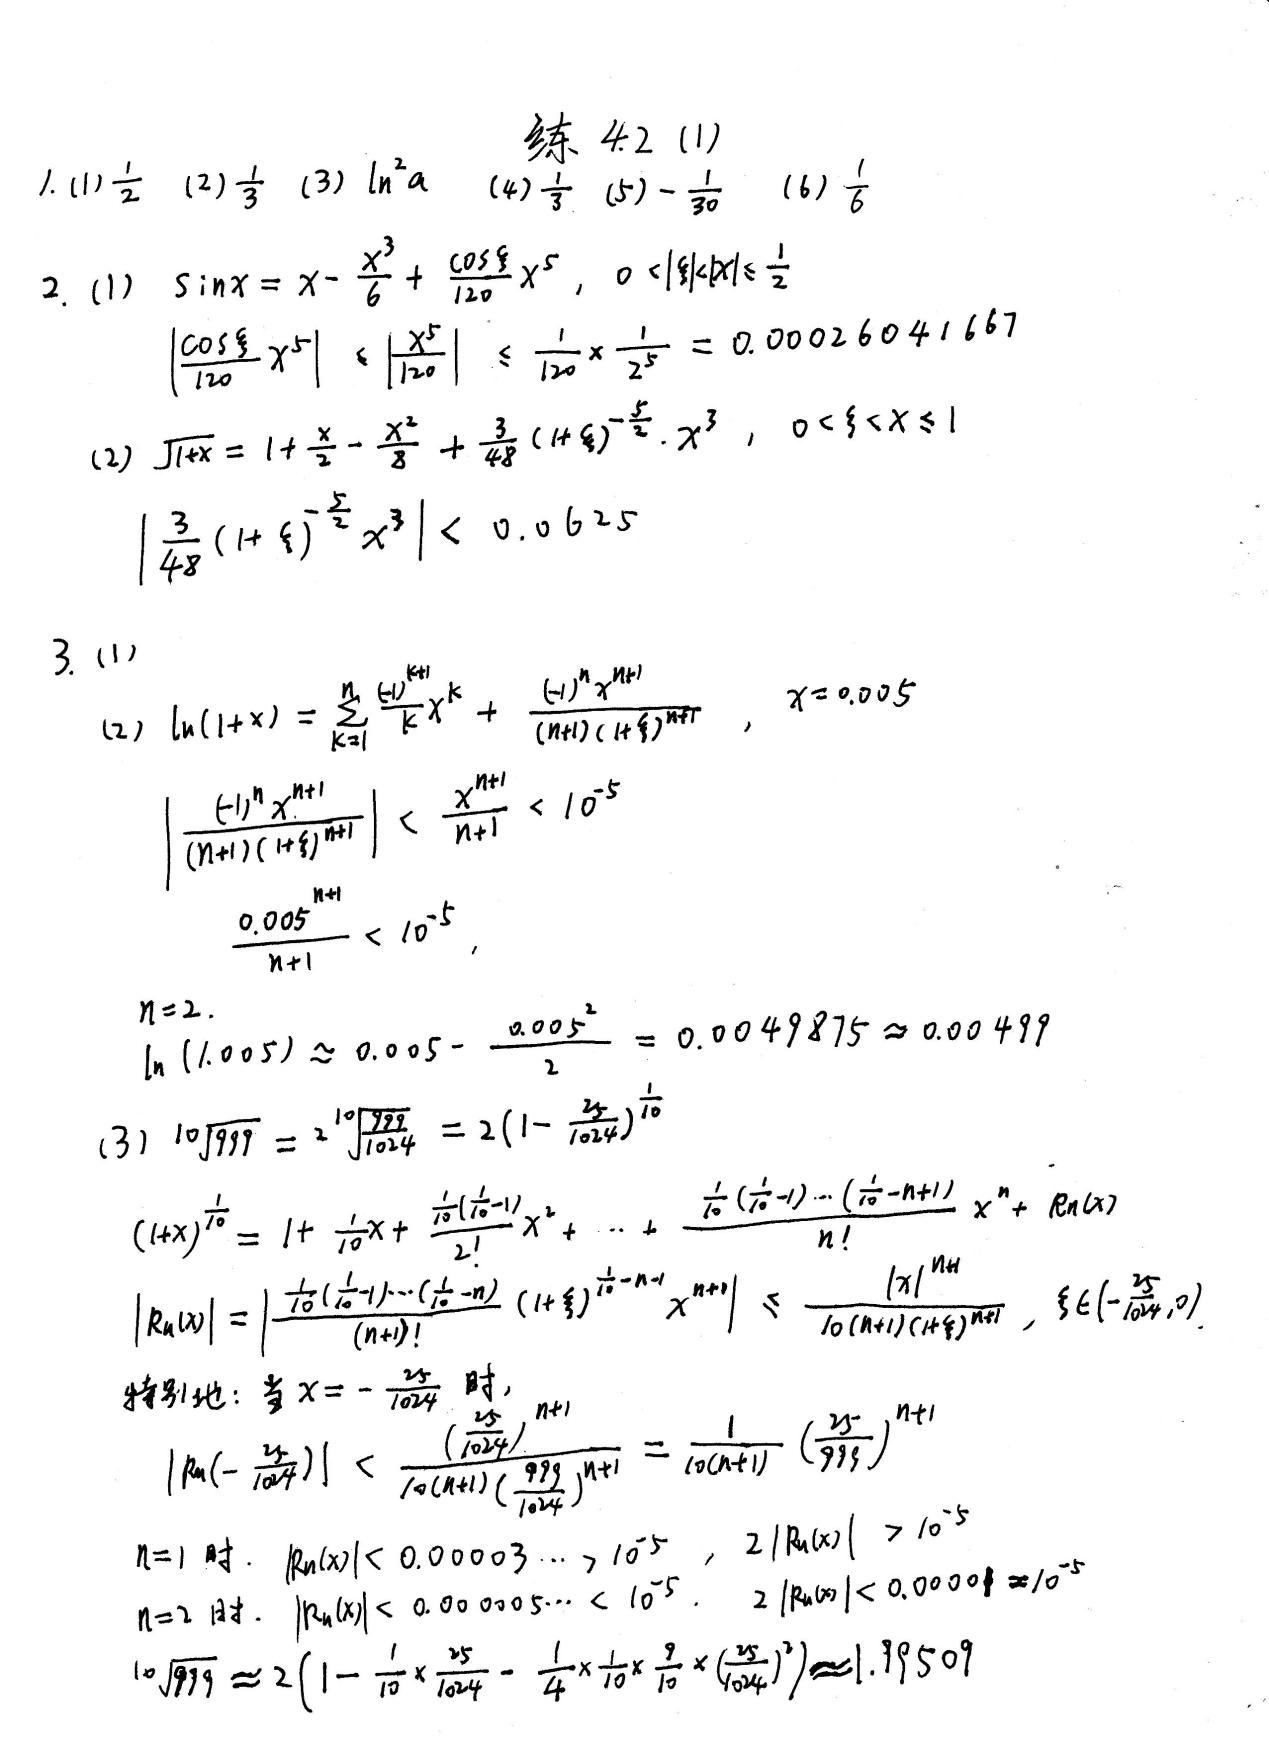 练 4.2 (1)
1. (1) 1/2 (2) 1/3 (3) ln²a (4) 1/3 (5) -1/30 (6) 1/6
2. (1) sinx = x - x³/6 + cosξ/120 x⁵, 0<|ξ|<|x|≤1/2
|cosξ/120 x⁵| ≤ |x⁵/120| ≤ 1/120 × 1/2⁵ = 0.00026041667
(2) √(1+x) = 1 + x/2 - x²/8 + 3/48 (1+ξ)^(-5/2) · x³, 0<ξ<x≤1
|3/48 (1+ξ)^(-5/2) x³| < 0.0625
3. (1)
(2) ln(1+x) = ∑_{k=1}^{n} (-1)^(k+1)/k x^k + (-1)^n x^(n+1)/((n+1)(1+ξ)^(n+1)), x=0.005
|(-1)^n x^(n+1)/((n+1)(1+ξ)^(n+1))| < x^(n+1)/(n+1) < 10^-5
0.005^(n+1)/(n+1) < 10^-5,
n=2.
ln(1.005) ≈ 0.005 - 0.005²/2 = 0.0049875 ≈ 0.00499
(3) ¹⁰√999 = 2 ¹⁰√(999/1024) = 2(1 - 25/1024)^(1/10)
(1+x)^(1/10) = 1 + 1/10 x + 1/10(1/10-1)/2! x² + ... + 1/10(1/10-1)...(1/10-n+1)/n! x^n + Rn(x)
|Rn(x)| = |1/10(1/10-1)...(1/10-n)/(n+1)! (1+ξ)^(1/10-n-1) x^(n+1)| ≤ |x|^(n+1)/(10(n+1)(1+ξ)^(n+1)), ξ∈(-25/1024,0).
特别地：当 x = -25/1024 时,
|Rn(-25/1024)| < (25/1024)^(n+1)/(10(n+1)(999/1024)^(n+1)) = 1/(10(n+1)) (25/999)^(n+1)
n=1 时. |Rn(x)| < 0.00003... > 10^-5, 2|Rn(x)| > 10^-5
n=2 时. |Rn(x)| < 0.0000005... < 10^-5. 2|Rn(x)| < 0.00001 ≈ 10^-5
¹⁰√999 ≈ 2(1 - 1/10 × 25/1024 - 1/4 × 1/10 × 9/10 × (25/1024)²) ≈ 1.99509